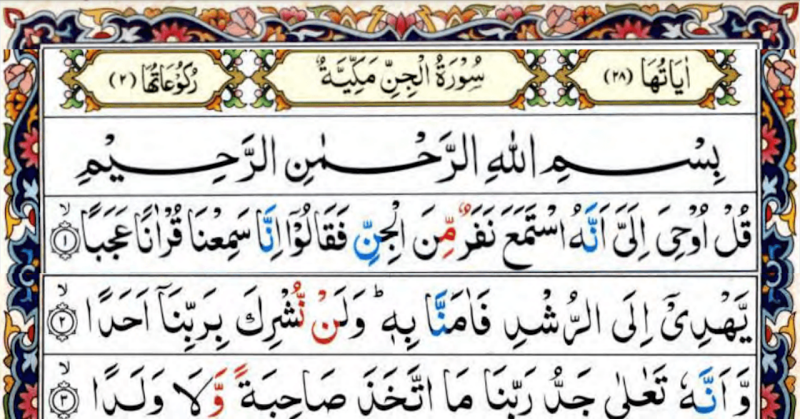 اٰيَاتُهَا (٢٨) سُوْرَةُ الْجِنِّ مَكِّيَّةٌ رُكُوْعَاتُهَا (٢)
بِسْمِ اللّٰهِ الرَّحْمٰنِ الرَّحِيْمِ
قُلْ اُوْحِيَ اِلَيَّ اَنَّهُ اسْتَمَعَ نَفَرٌ مِّنَ الْجِنِّ فَقَالُوْٓا اِنَّا سَمِعْنَا قُرْاٰنًا عَجَبًا ۙ﴿١﴾
يَّهْدِيْٓ اِلَى الرُّشْدِ فَاٰمَنَّا بِهٖ ؕ وَلَنْ نُّشْرِكَ بِرَبِّنَآ اَحَدًا ۙ﴿٢﴾
وَّاَنَّهٗ تَعٰلٰى جَدُّ رَبِّنَا مَا اتَّخَذَ صَاحِبَةً وَّلَا وَلَدًا ۙ﴿٣﴾